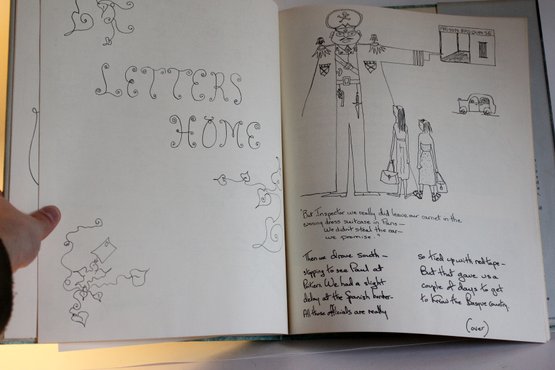 LETTERS
HOME
"But Inspector we really did leave our carnet in the
evening dress suitcase in Paris —
We didn't steal the car —
we promise."
Then we drove south —
stopping to see Paul at
Poitiers We had a slight
delay at the Spanish border —
All those officials are really
so tied up with red tape —
But that gave us a
couple of days to get
to know the Basque Country
(over)